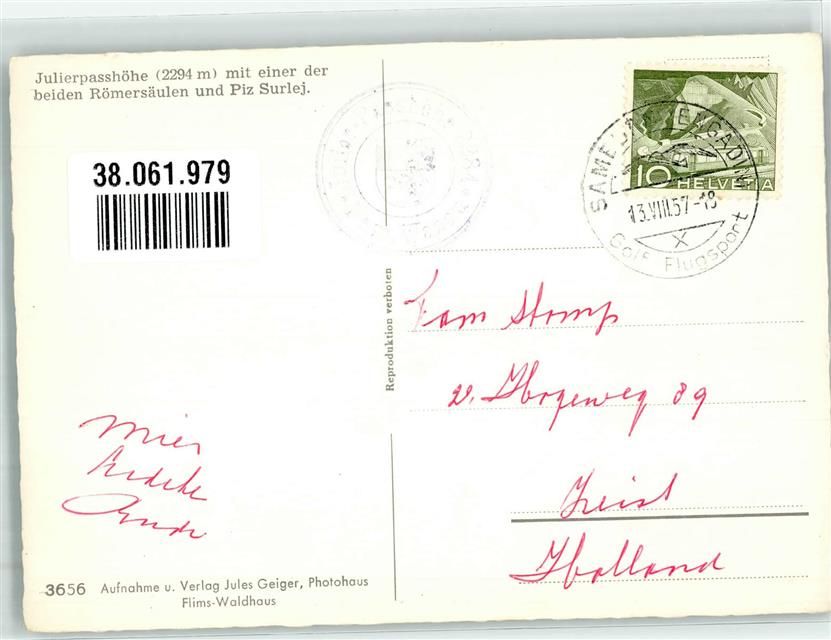 Julierpasshöhe (2294 m) mit einer der
beiden Römersäulen und Piz Surlej.
38.061.979
10 HELVETIA
SAMEDAN ENGADIN
13.VIII.57-18
Golf Flugsport
Reproduktion verboten
Fam Stomp
v. Hogeweg 89
Zeist
Holland
Mies
3656 Aufnahme u. Verlag Jules Geiger, Photohaus
Flims-Waldhaus